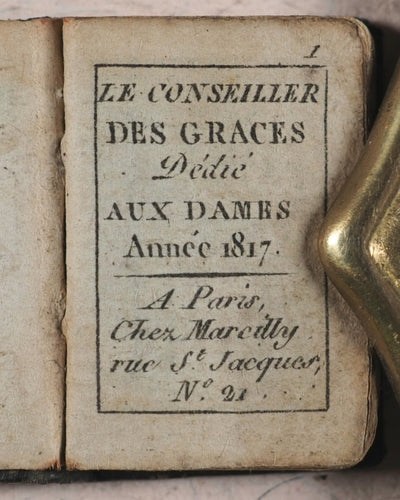 1
LE CONSEILLER
DES GRACES
Dédié
AUX DAMES
Année 1817.
A Paris,
Chez Marcilly
rue St. Jacques,
No. 21